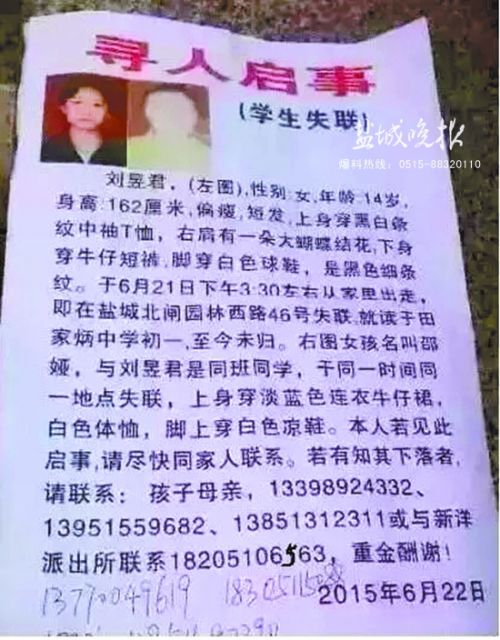 寻人启事
(学生失联)
盐城晚报
爆料热线：0515-88320110
刘昱君，(左图),性别:女,年龄:14岁,
身高:162厘米,偏瘦,短发,上身穿黑白条
纹中袖T恤，右肩有一朵大蝴蝶结花,下身
穿牛仔短裤,脚穿白色球鞋，是黑色细条
纹。于6月21日下午3:30左右从家里出走,
即在盐城北闸园林西路46号失联,就读于田
家炳中学初一,至今未归。右图女孩名叫邵
娅，与刘昱君是同班同学，于同一时间同
一地点失联，上身穿淡蓝色连衣牛仔裙，
白色体恤，脚上穿白色凉鞋。本人若见此
启事,请尽快同家人联系。若有知其下落者,
请联系：孩子母亲，13398924332、
13951559682、13851312311或与新洋
派出所联系18205106563，重金酬谢！
13770049619
2015年6月22日